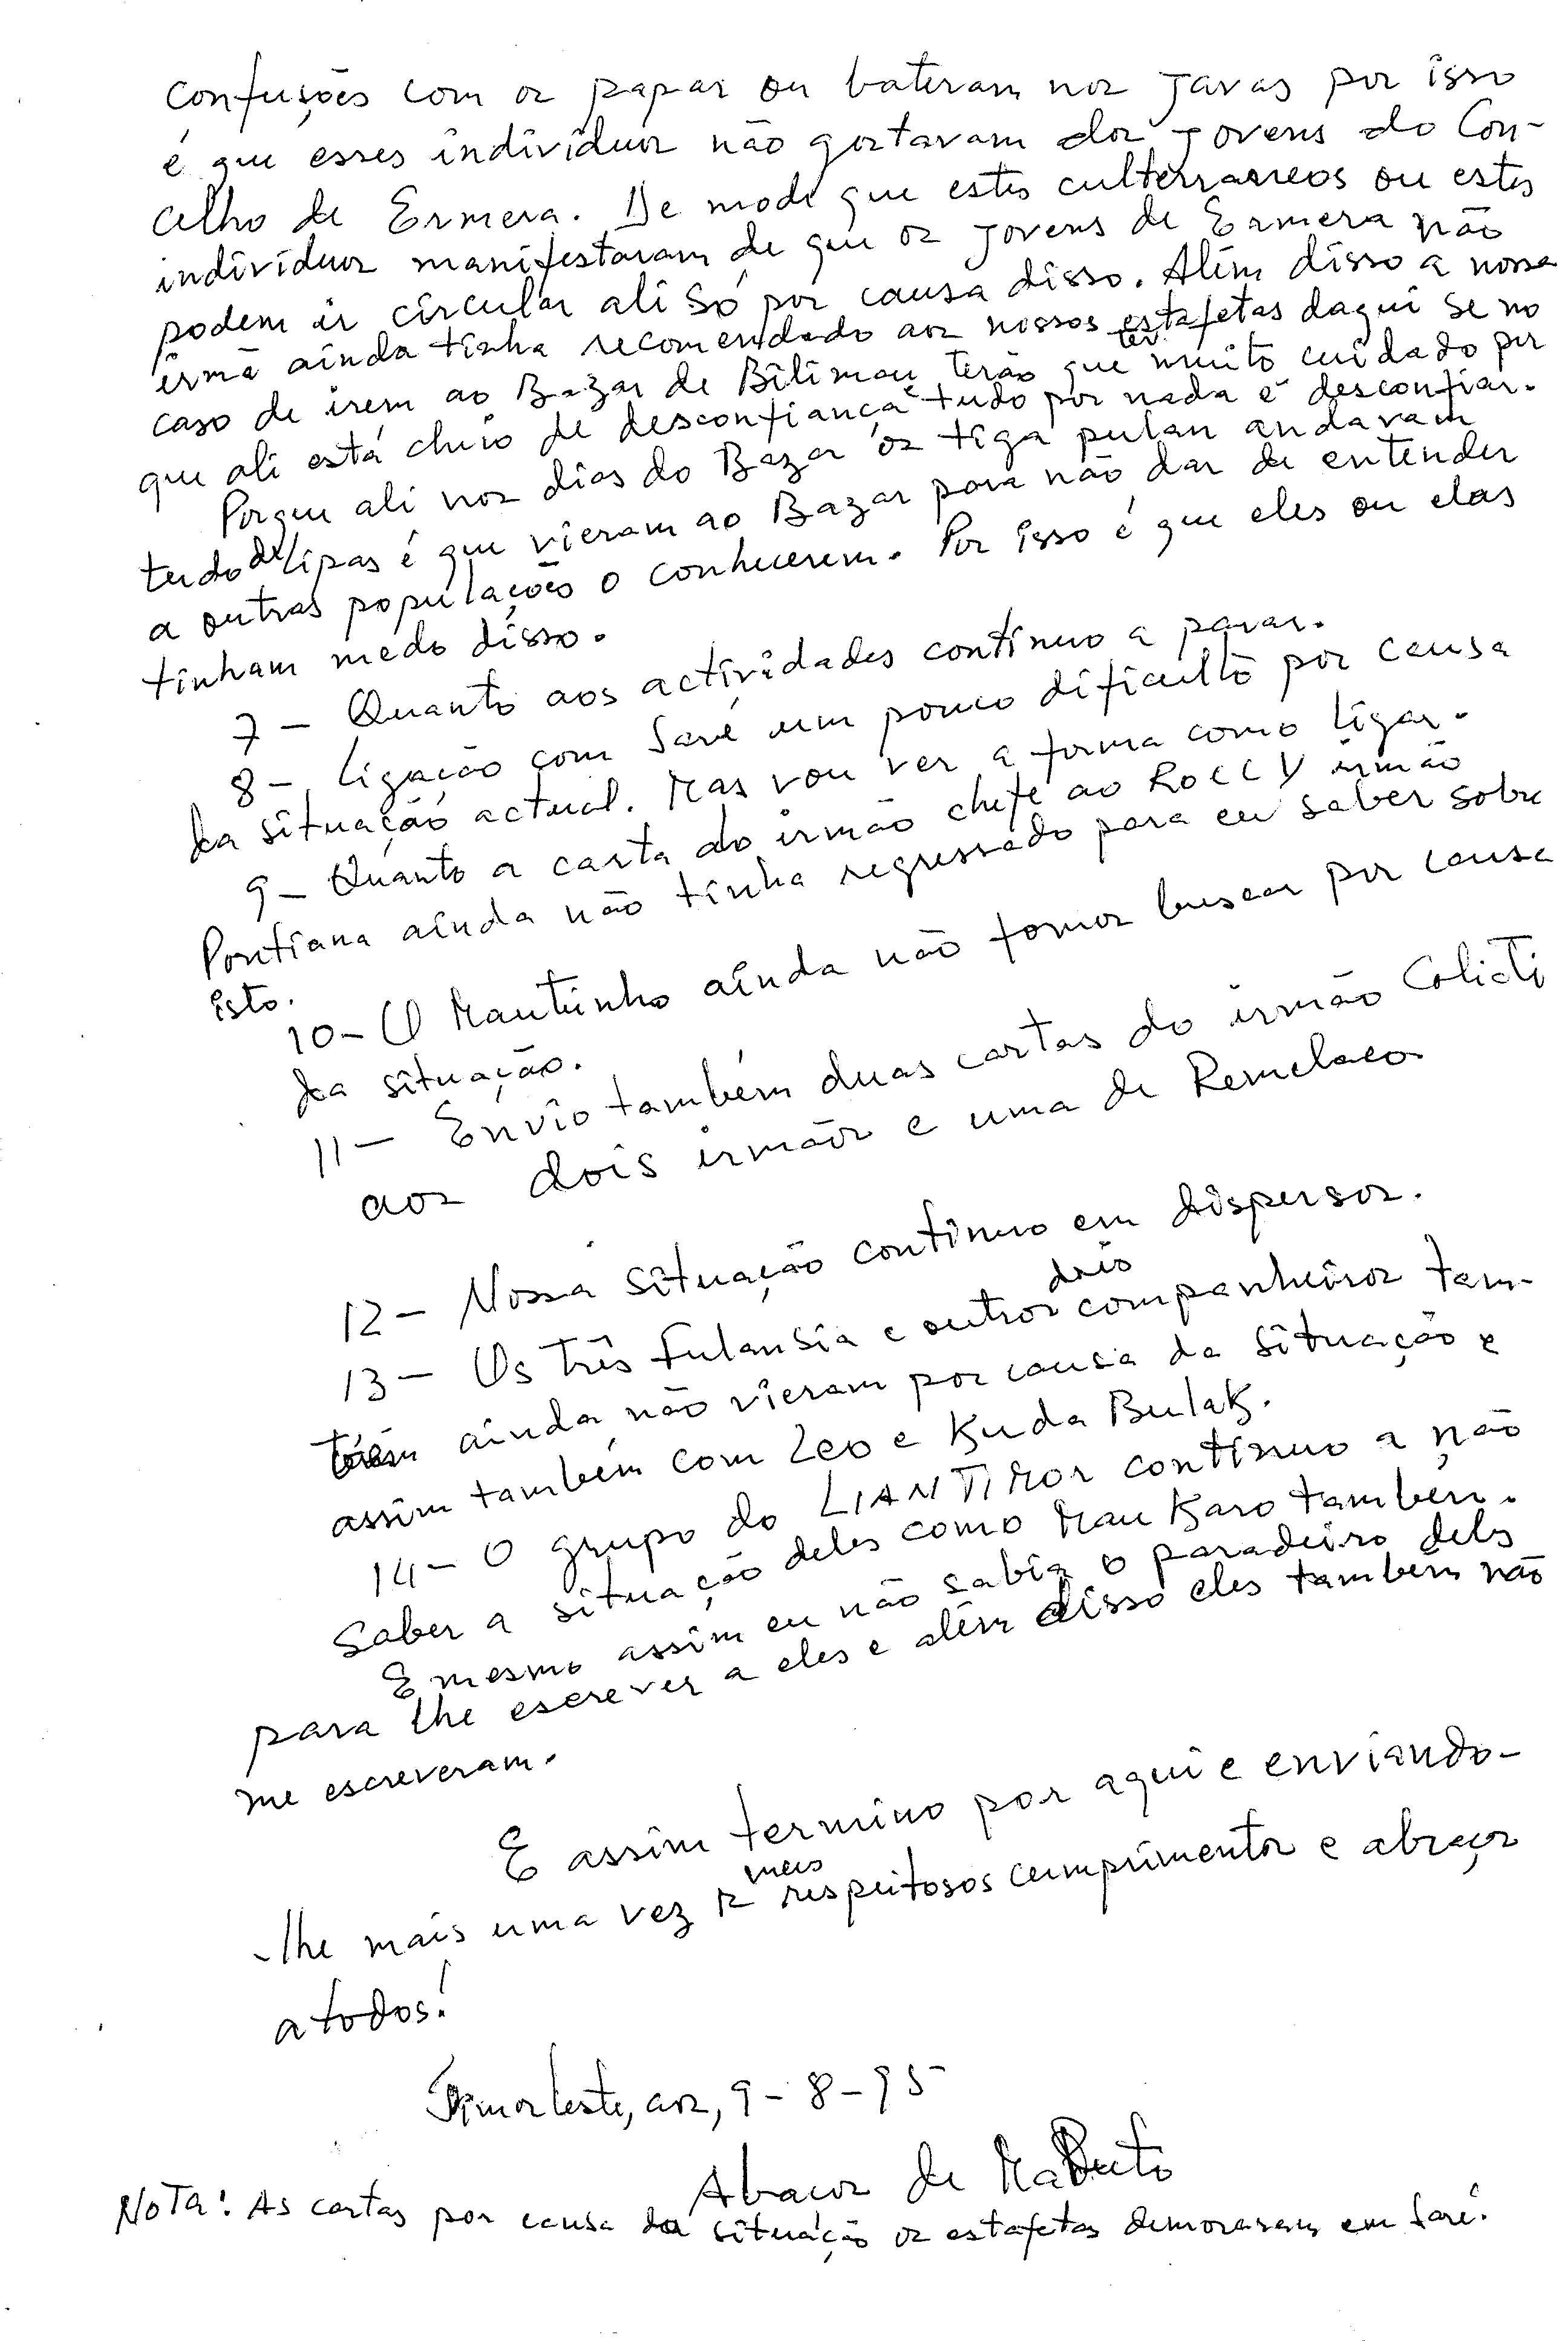 confusões com os papar ou bateram nos Javas por isso
é que esses indivíduos não gostavam dos jovens do Con-
celho de Ermera. De modo que estes culterraneos ou estes
indivíduos manifestaram de que os jovens de Ermera não
podem ir circular ali só por causa disso. Além disso a nossa
irmã ainda tinha recomendado aos nossos estafetas daqui se no
caso de irem ao Bazar de Bilimau terão que ter muito cuidado por
que ali está cheio de desconfiança e tudo por nada é desconfiar.
Porque ali nos dias do Bazar os tiga pulan andavam
tudo de lipas é que vieram ao Bazar para não dar de entender
a outras populações o conhecerem. Por isso é que eles ou elas
tinham medo disso.
7 - Quanto aos actividades continuo a parar.
8 - Ligação com Saré um pouco dificulto por causa
da situação actual. Mas vou ver a forma como ligar.
9 - Quanto a carta do irmão chefe ao ROCCY irmão
Pontiana ainda não tinha regressado para eu saber sobre
isto.
10 - O Mautinho ainda não fomos buscar por causa
da situação.
11 - Envio também duas cartas do irmão Coliati
aos dois irmãos e uma de Remelaco
12 - Nossa situação continuo em dispersos.
13 - Os três Fulansia e outros dois companheiros tam-
bém ainda não vieram por causa da situação e
assim também com Leo e Kuda Bulak.
14 - O grupo do LIANTIMOR continuo a não
saber a situação deles como Mau Karo também.
E mesmo assim eu não sabia o paradeiro deles
para lhe escrever a eles e além disso eles também não
me escreveram.
E assim termino por aqui e enviando-
-lhe mais uma vez os meus respeitosos cumprimentos e abraços
a todos!
Timor leste, aos, 9-8-95
Abraços de
NOTA: As cartas por causa da situação os estafetas demoraram em Saré.